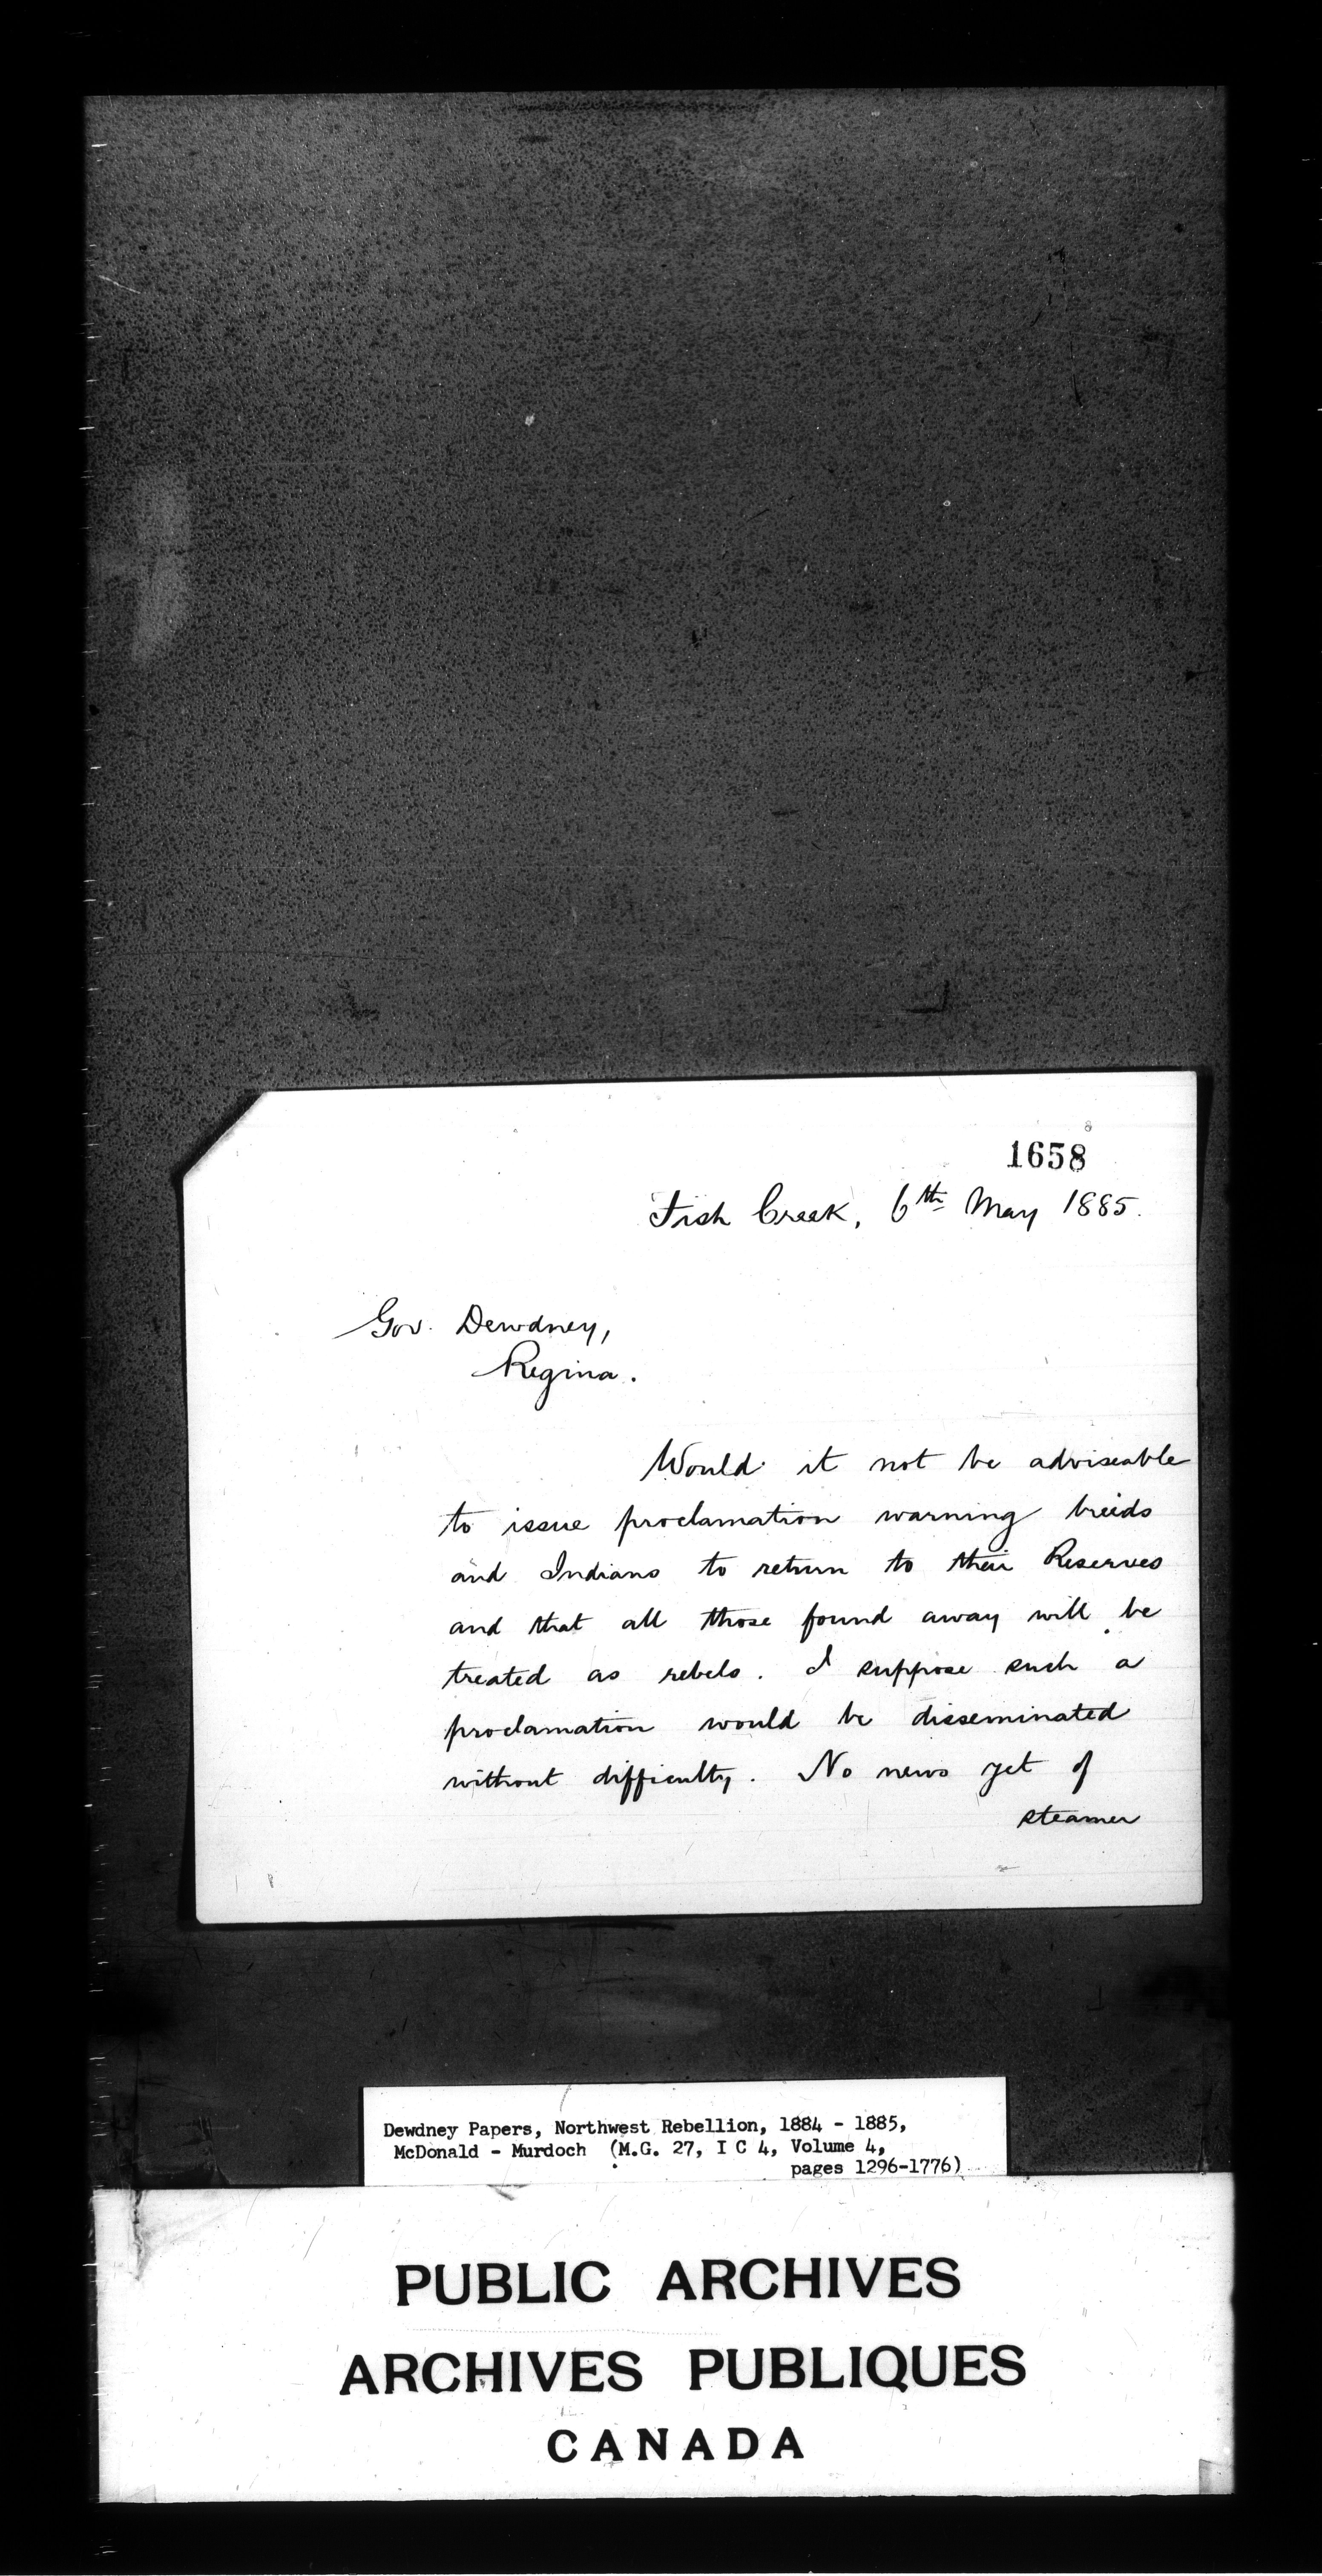 1658
Fish Creek, 6th May 1885.
Gov. Dewdney,
Regina.
Would it not be adviseable
to issue proclamation warning breeds
and Indians to return to their Reserves
and that all those found away will be
treated as rebels. I suppose such a
proclamation would be disseminated
without difficulty. No news yet of
steamer
Dewdney Papers, Northwest Rebellion, 1884 - 1885,
McDonald - Murdoch (M.G. 27, I C 4, Volume 4,
pages 1296-1776)
PUBLIC ARCHIVES
ARCHIVES PUBLIQUES
CANADA